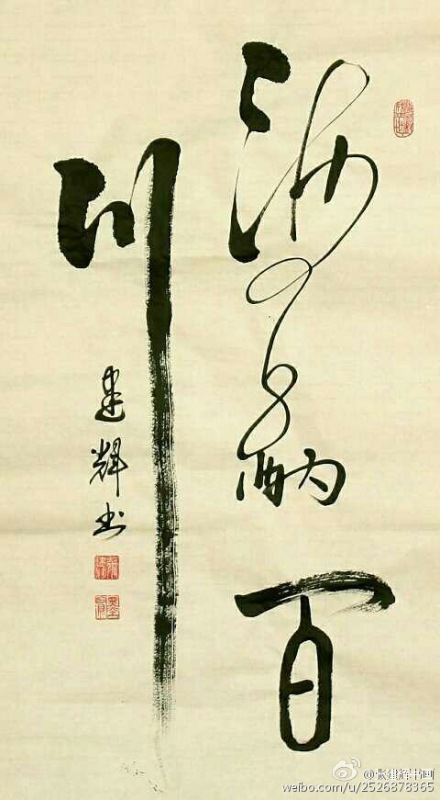 海纳百
川
建辉书
weibo.com/u/2526878365